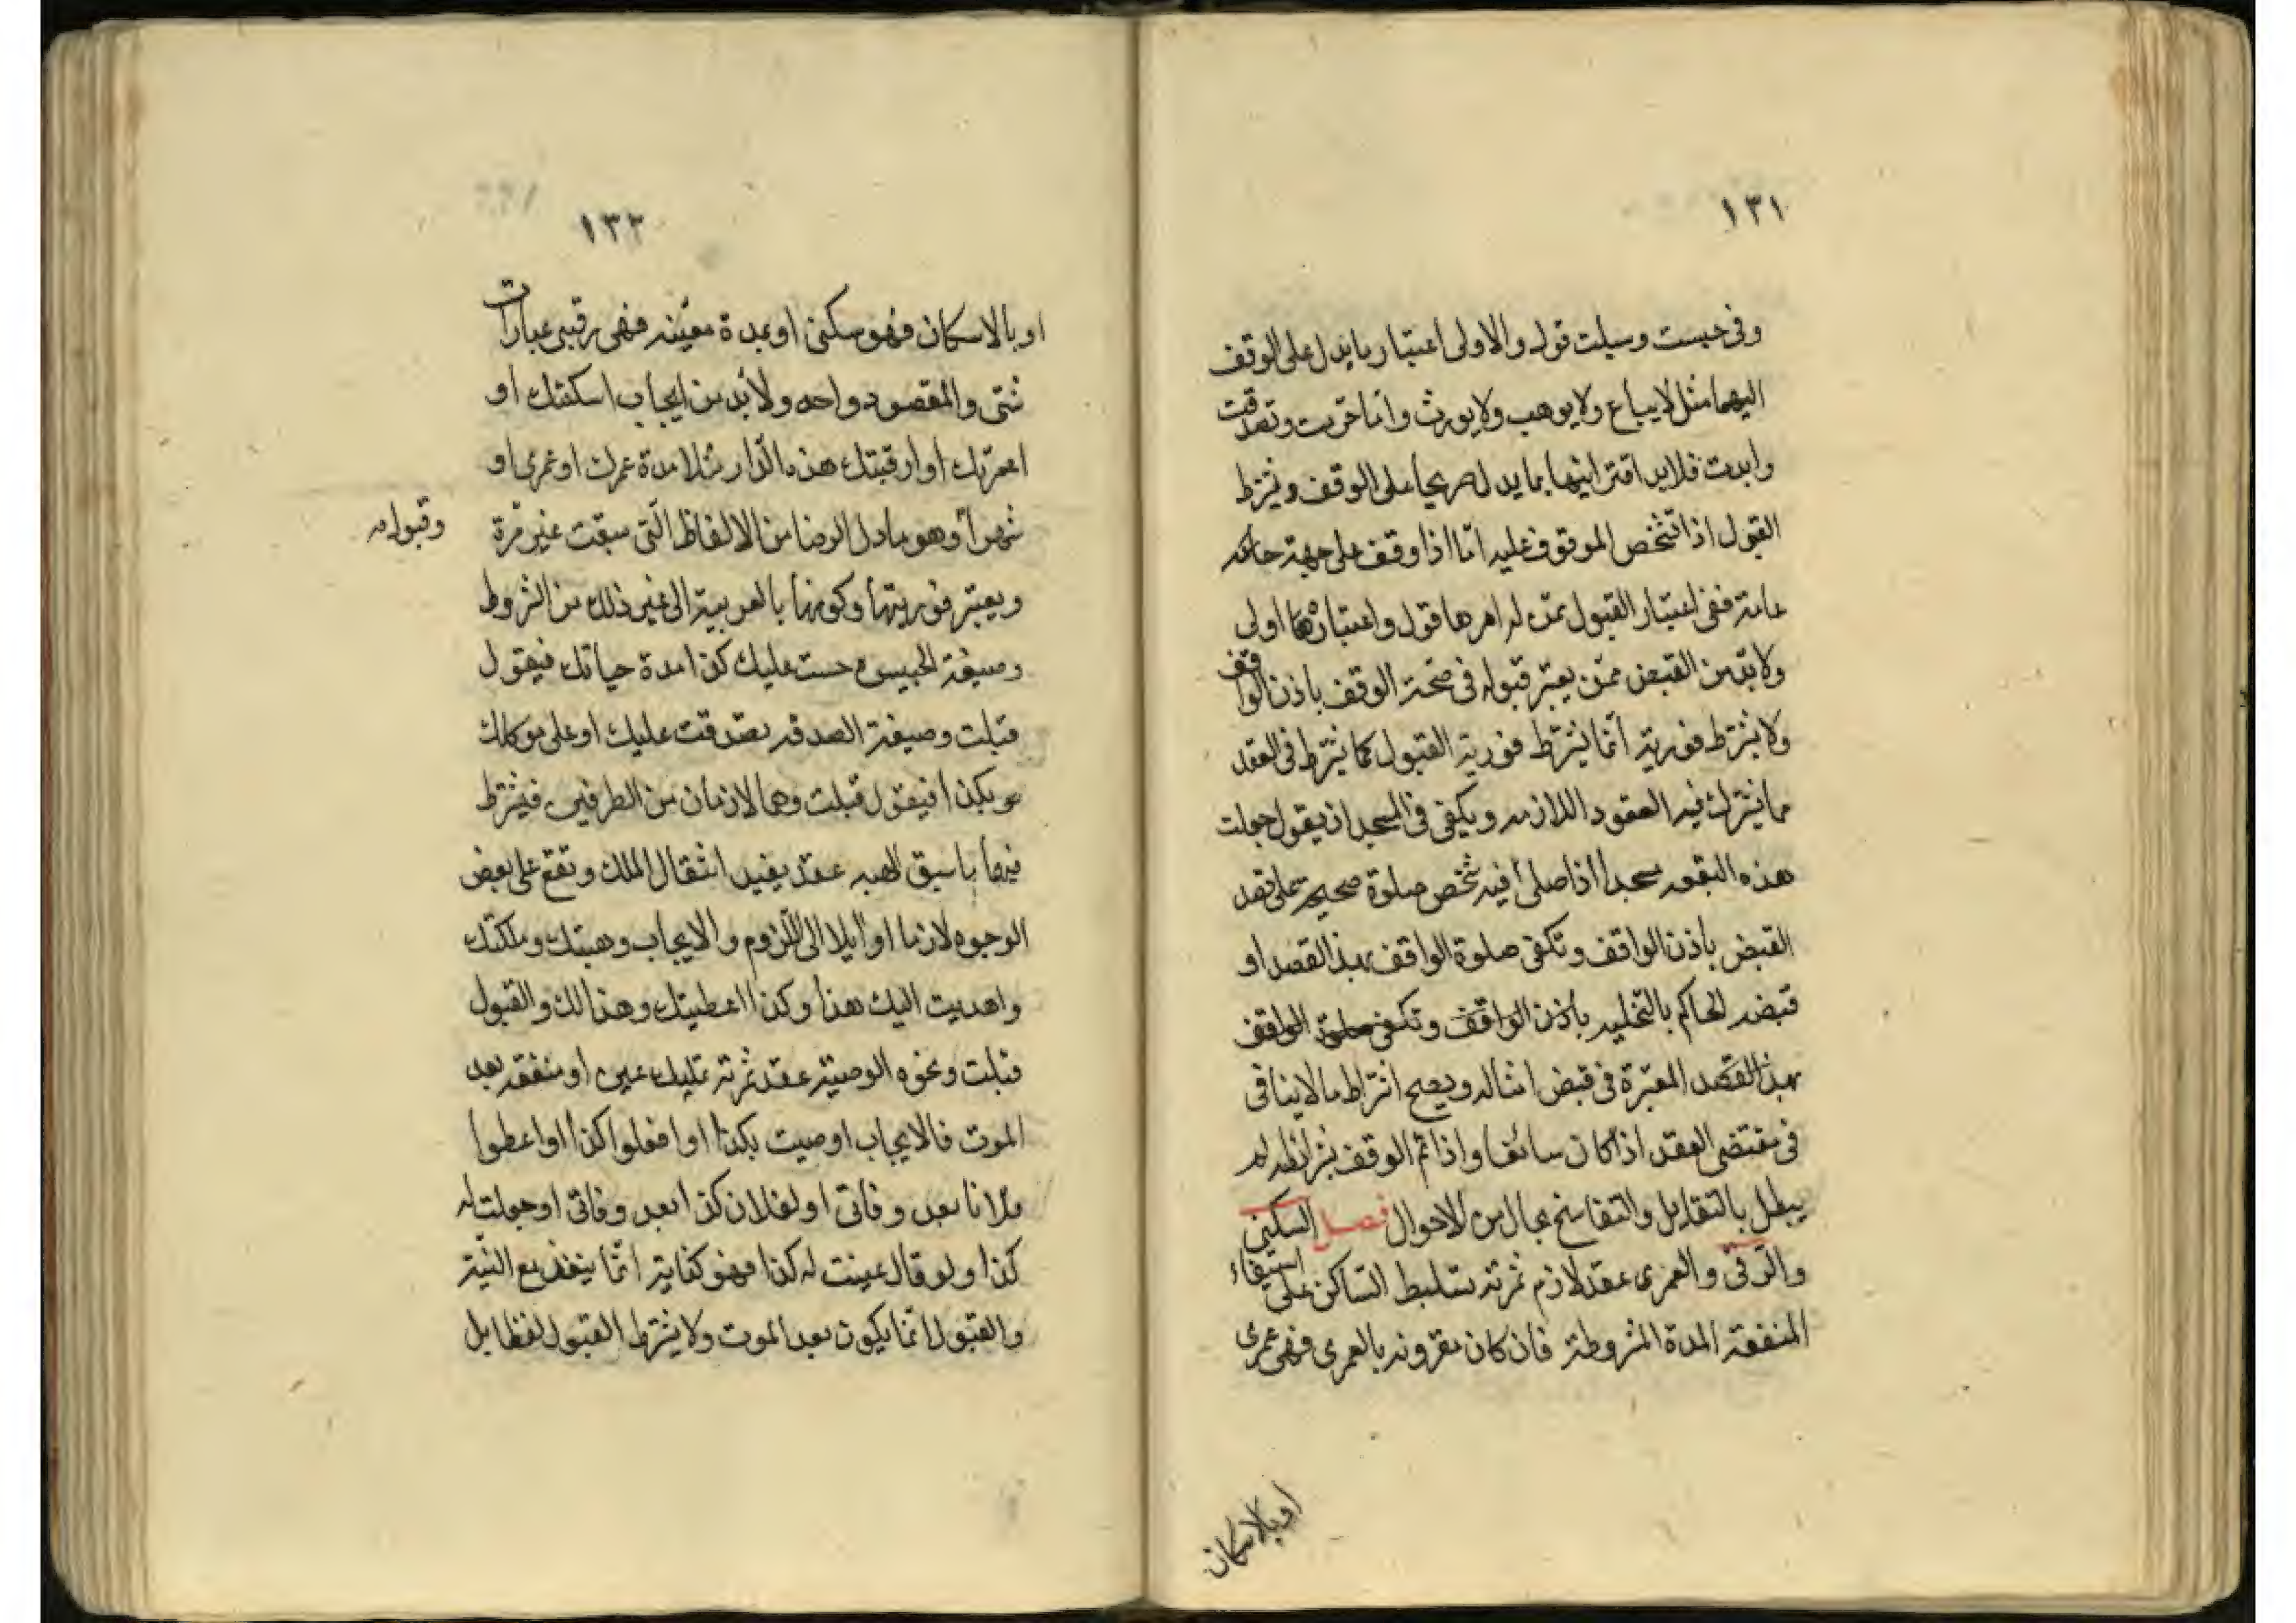 ١٣١
وفى حبست وسبلت قول والاولى اعتبار ما يدل على الوقف
اليهما مثل لا يباع ولا يوهب ولا يورث واما حرمت وتصدقت
وابدت فلابد اقترانها بما يدل صريحا على الوقف ويشترط
القبول اذا تشخص الموقوف عليه اما اذا وقف على جهة
عامة ففى اعتبار القبول ممن له امرها قول واعتبارها اولى
ولا بد من القبض ممن يعتبر قبوله فى صحة الوقف باذن الواقف
ولا يشترط فوريته انما يشترط فورية القبول كما يشترط فى العقد
مما يشترك فيه العقود اللازمه ويكفى فى المسجد ان يقول جعلت
هذه البقعه مسجدا اذا صلى فيه شخص صلوة صحيحة على قصد
القبض باذن الواقف وتكفى صلوة الواقف بهذا القصد او
قبضه الحاكم بالتخليه باذن الواقف وتكفى صلوة الواقف
بهذا القصد المعتبرة فى قبض امثاله ويصح اشتراط ما لا ينافى
فى مقتضى العقد اذا كان سائغا واذا تم الوقف بشرائطه لم
يبطل بالتقايل والتفاسخ بحال من الاحوال فصل السكنى
والرقبى والعمرى عقد لازم ثمرته تسليط الساكن على استيفاء
المنفعة المدة المشروطة فان كان مقرونه بالعمرى فهى عمرى
او بالاسكان
١٣٢
او بالاسكان فهو سكنى او بمدة معينه فهى رقبى عبارات
شتى والمقصود واحد ولا بد من ايجاب اسكنتك او
اعمرتك او ارقبتك هذه الدار مثلا مدة عمرك او عمرى او
شهرا وهو ما دل الرضا من الالفاظ التى سبقت غير مرة
وقبوله
ويعتبر فوريتها وكونها بالعربية الى غير ذلك من الشروط
وصيغة الحبيس حبست عليك كذا مدة حياتك فيقول
قبلت وصيغة الصدقه تصدقت عليك او على موكلك
بكذا فيقول قبلت وهما لازمان من الطرفين فيشترط
فيهما ما سبق الهبه عقد يفيد انتقال الملك وتقع على بعض
الوجوه لازما او ايلا الى اللزوم والايجاب وهبتك وملكتك
واهديت اليك هذا وكذا اعطيتك وهذا لك والقبول
قبلت ونحوه الوصية عقد ثمرته تمليك عين او منفعه بعد
الموت فالايجاب اوصيت بكذا او افعلوا كذا او اعطوا
فلانا بعد وفاتى او لفلان كذا بعد وفاتى او جعلت له
كذا ولو قال عينت له كذا فهو كناية انما ينفذ مع النية
والقبول انما يكون بعد الموت ولا يشترط القبول لفظا بل